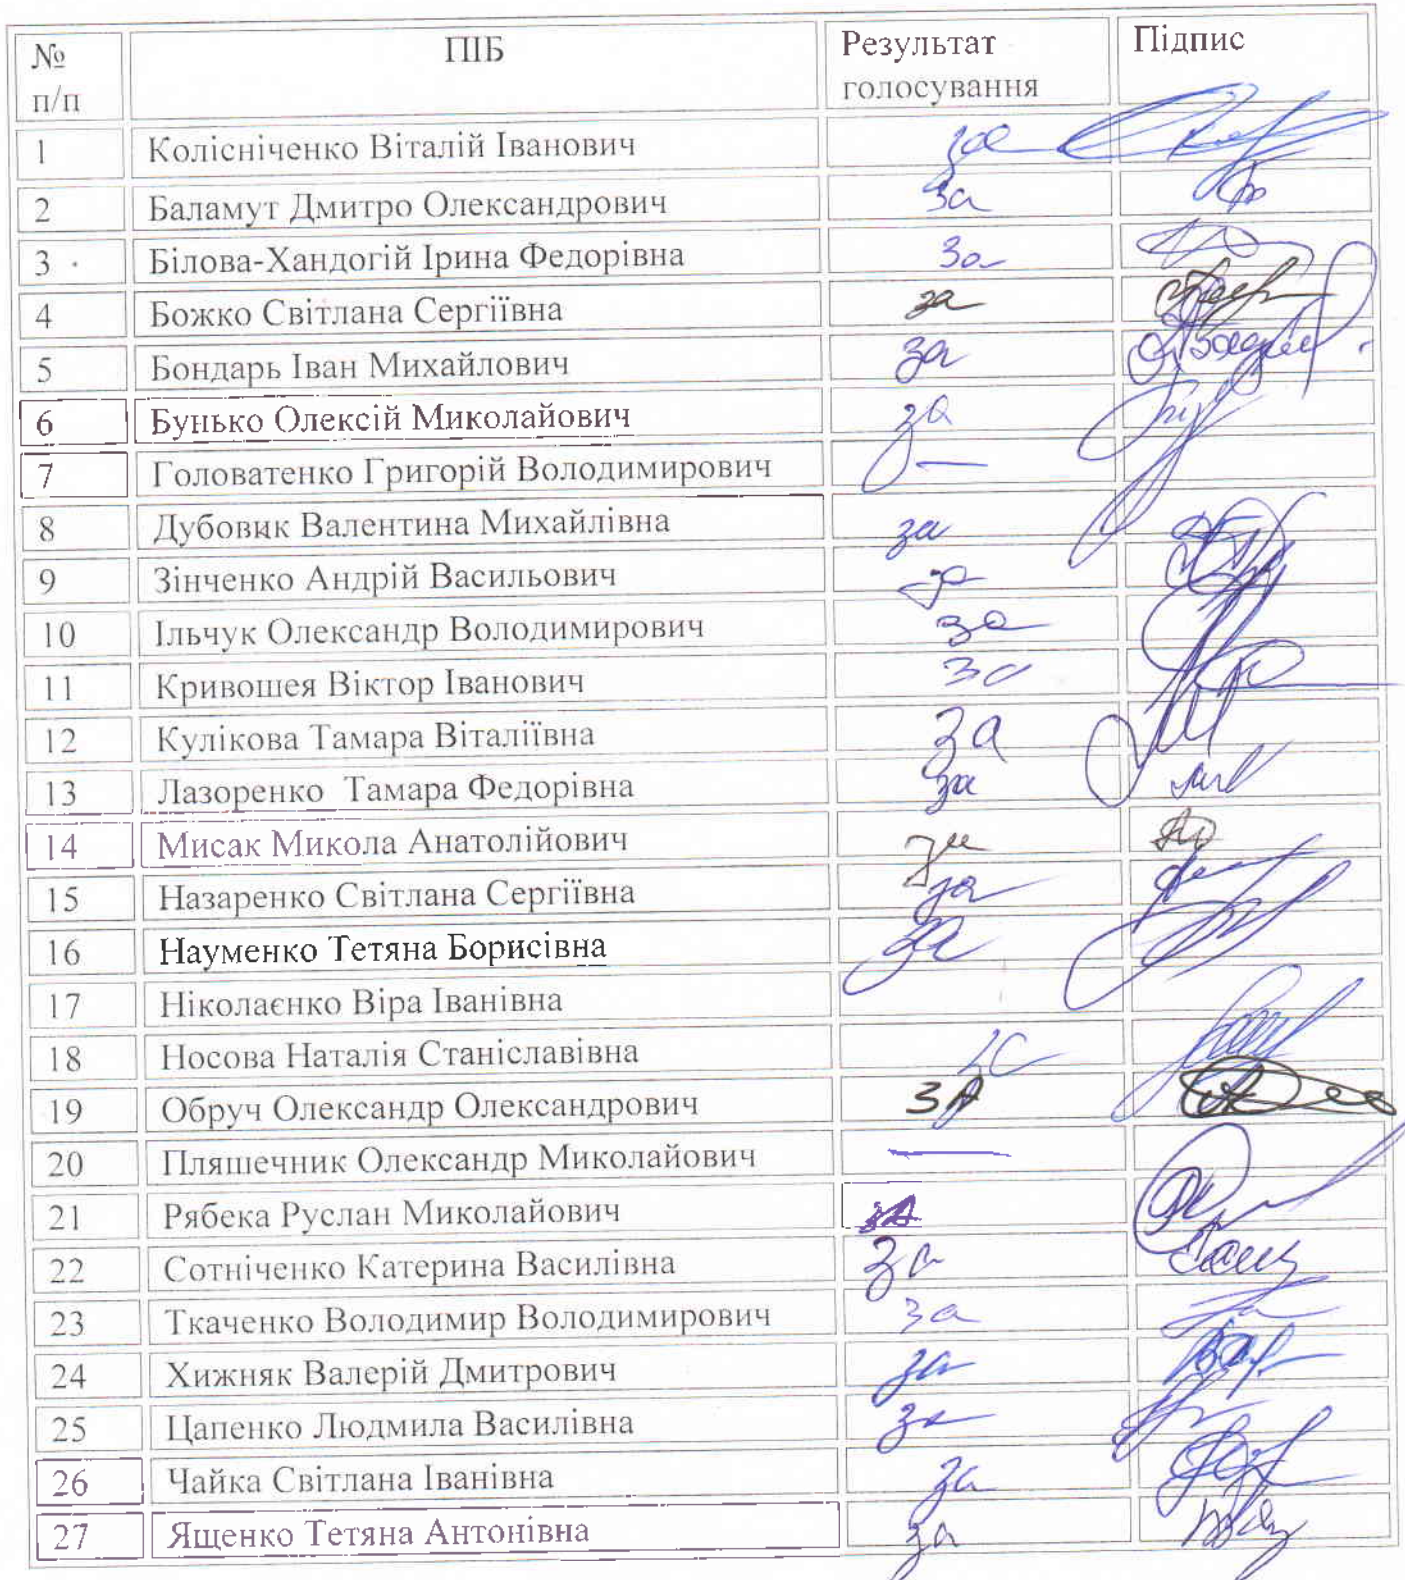 № п/п ПІБ Результат голосування Підпис
1 Колісніченко Віталій Іванович за
2 Баламут Дмитро Олександрович за
3 Білова-Хандогій Ірина Федорівна за
4 Божко Світлана Сергіївна за
5 Бондарь Іван Михайлович за
6 Бунько Олексій Миколайович за
7 Головатенко Григорій Володимирович —
8 Дубовик Валентина Михайлівна за
9 Зінченко Андрій Васильович
10 Ільчук Олександр Володимирович за
11 Кривошея Віктор Іванович за
12 Кулікова Тамара Віталіївна за
13 Лазоренко Тамара Федорівна за
14 Мисак Микола Анатолійович за
15 Назаренко Світлана Сергіївна за
16 Науменко Тетяна Борисівна за
17 Ніколаєнко Віра Іванівна
18 Носова Наталія Станіславівна за
19 Обруч Олександр Олександрович ЗА
20 Пляшечник Олександр Миколайович —
21 Рябека Руслан Миколайович за
22 Сотніченко Катерина Василівна за
23 Ткаченко Володимир Володимирович за
24 Хижняк Валерій Дмитрович за
25 Цапенко Людмила Василівна за
26 Чайка Світлана Іванівна за
27 Ященко Тетяна Антонівна за